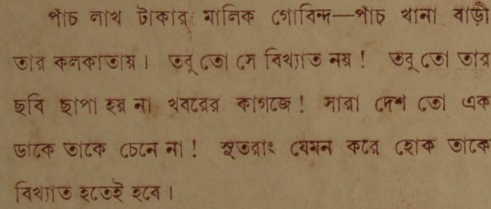 পাঁচ লাখ টাকার মালিক গোবিন্দ—পাঁচ খানা বাড়ী
তার কলকাতায়। তবু তো সে বিখ্যাত নয়! তবু তো তার
ছবি ছাপা হয় না খবরের কাগজে! সারা দেশ তো এক
ডাকে তাকে চেনে না! সুতরাং যেমন করে হোক তাকে
বিখ্যাত হতেই হবে।